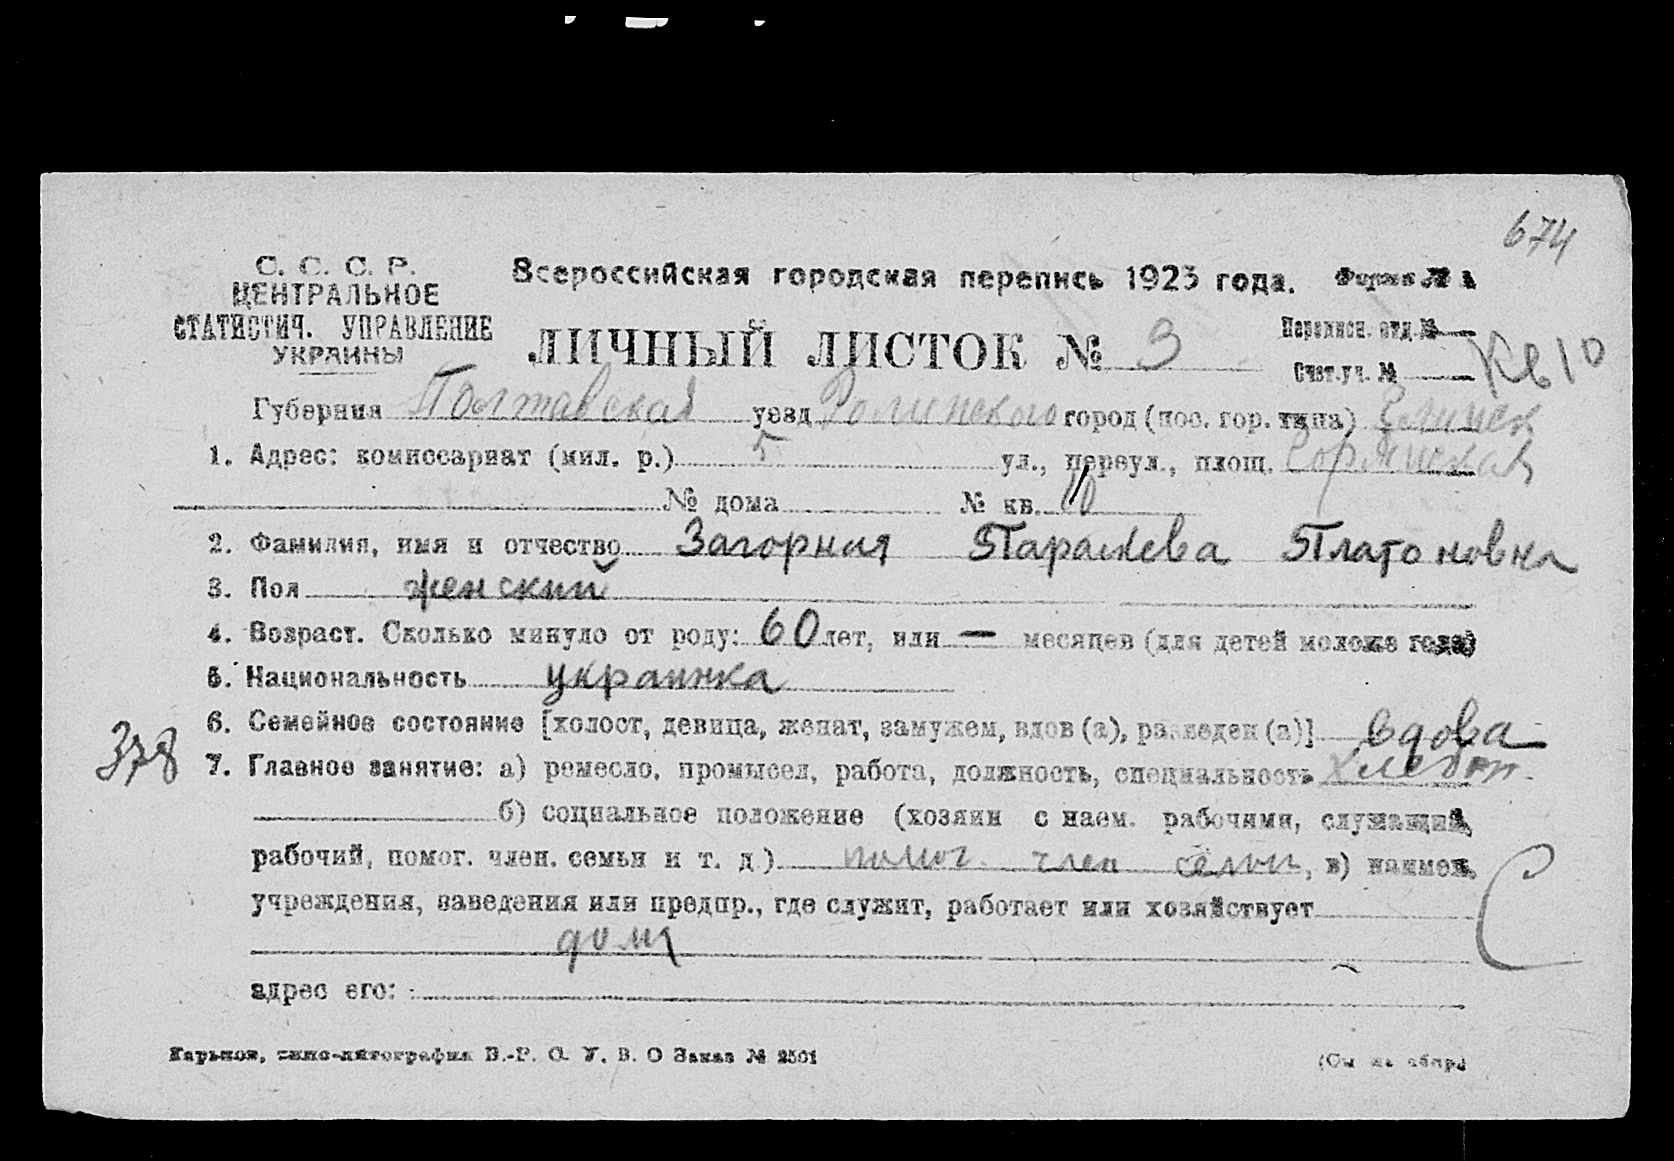 674
С. С. С. Р.
ЦЕНТРАЛЬНОЕ
СТАТИСТИЧ. УПРАВЛЕНИЕ
УКРАИНЫ
Всероссийская городская перепись 1923 года. Форма № 1
ЛИЧНЫЙ ЛИСТОК № 3
Переписн. отд. №
Счет. уч. № Кв 10
Губерния Полтавская уезд город (пос. гор. типа)
1. Адрес: комиссариат (мил. р.) 5 ул., переул., площ.
№ дома № кв. 10
2. Фамилия, имя и отчество Загорная Параскева Платоновна
3. Пол женский
4. Возраст. Сколько минуло от роду: 60 лет, или — месяцев (для детей моложе года)
5. Национальность украинка
6. Семейное состояние [холост, девица, женат, замужем, вдов (а), разведен (а)] вдова
378
7. Главное занятие: а) ремесло, промысел, работа, должность, специальность хлебоп.
б) социальное положение (хозяин с наем. рабочими, служащий,
рабочий, помог. член. семьи и т. д.) помог. член семьи, в) наимен.
учреждения, заведения или предпр., где служит, работает или хозяйствует
дома
С
адрес его:
Харьков, типо-литография В.-Р. О. У. В. О Заказ № 2501
(См на обор.)